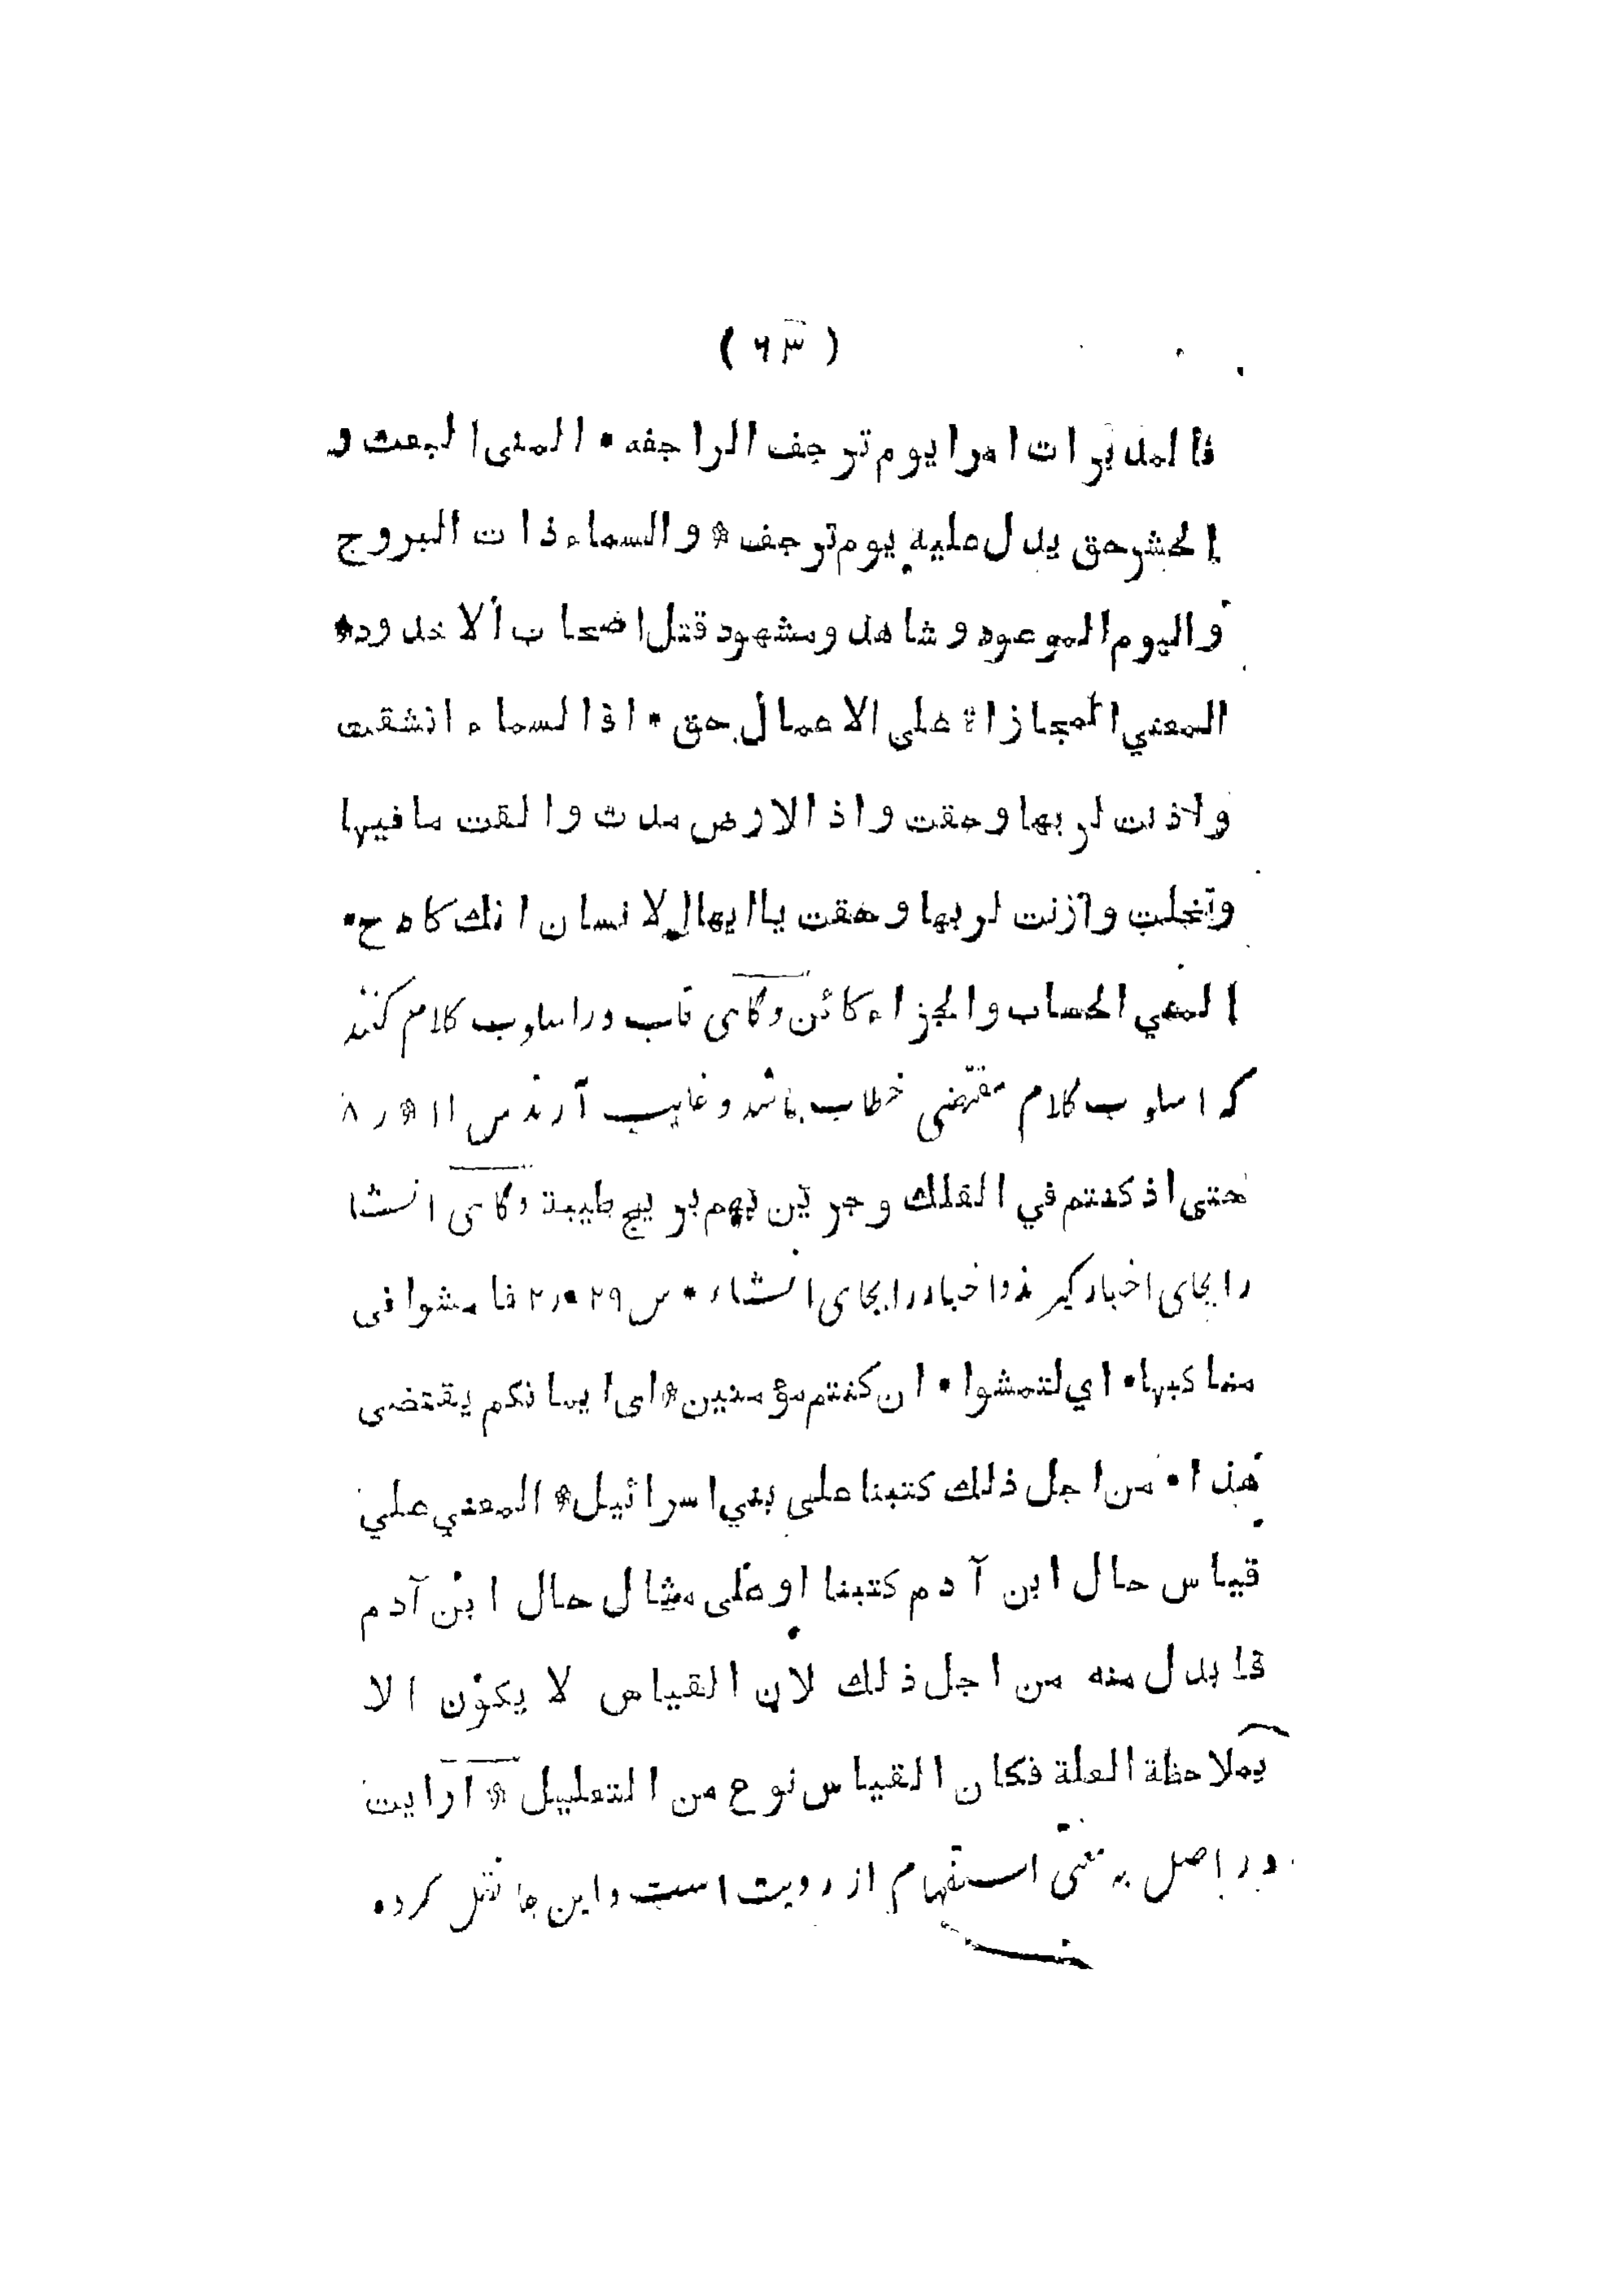 ( ٦٣ )
فالمدبرات امرا يوم ترجف الراجفه * المنى البعث و
الحشر حق يدل عليه يوم ترجف * والسماء ذات البروج
واليوم الموعود و شاهد ومشهود قتل اصحاب الاخدود *
المعني المجازاة على الاعمال حق * اذا السماء انشقت
واذنت لربها وحقت واذ الارض مدت والقت مافيها
وتخلت وآزنت لربها وحقت ياايها الانسان انك كاد ح *
المعي الحساب والجزاء كائن وگاہی قلب در اسلوب کلام کنند
کہ اسلوب کلام مقتضی خطاب باشد و غایب آرند س ١١ * ر ٨
حتى اذ كنتم في الفلك وجرين بهم بريح طيبة وگاہی انشا
را بجای اخبار گیرند و اخبار را بجای انشاء * س ٢٩ * ر ٢ فامشوا فى
مناكبها * اي لتمشوا * ان كنتم مؤمنين * اى ايمانكم يقتضى
هذا * من اجل ذلك كتبنا على بني اسرائيل * المعني علي
قياس حال ابن آدم كتبنا او على مثال حال ابن آدم
فابدل منه من اجل ذلك لان القياس لا يكون الا
بملاحظة العلة فكان القياس نوع من التعليل * ارايت
در اصل بہ معنی استفہام از رویت است و این جا نقل کرده